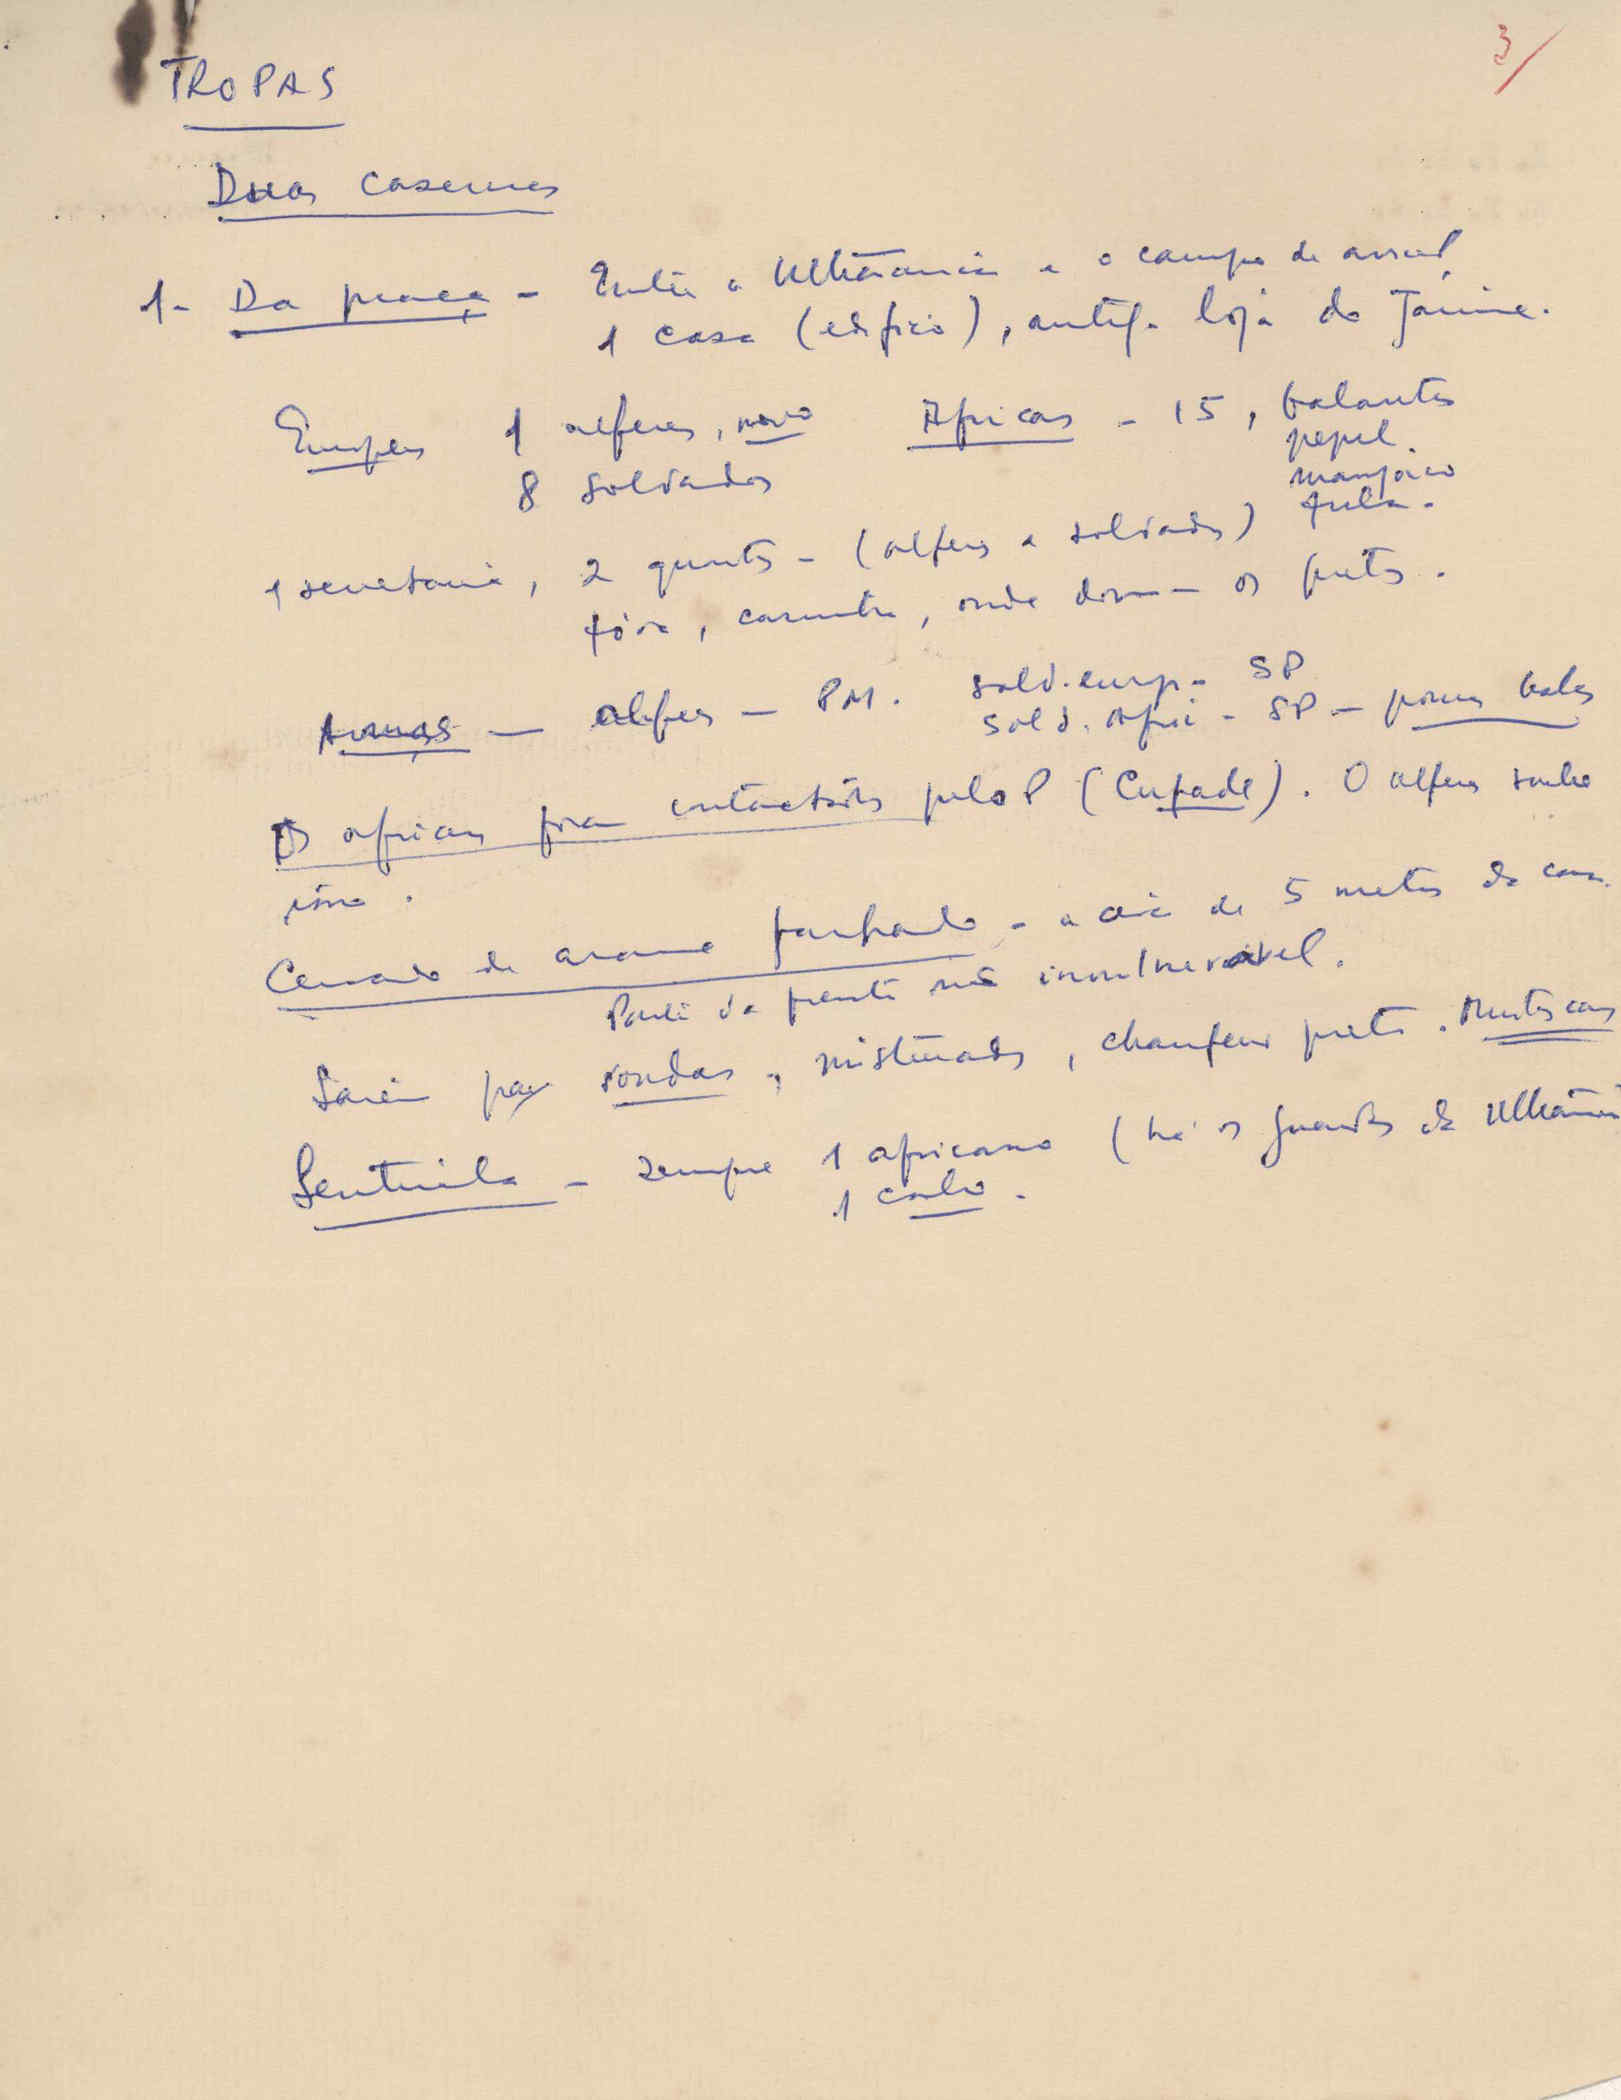 3/
TROPAS
Duas casernas
1- Da praça - Entre a Ultramarina e o campo de
1 casa (edifício), antiga loja do Jaime.
Europeus 1 alferes, novo Africanos - 15, balantas
8 soldados pepel
manjaco
1 secretaria, 2 quartos - (alferes e soldados) fula.
fóra, casinha, onde dormem os pretos.
Armas - alferes - PM. sold. europ - SP
sold. Afri - SP - poucas balas
Os africanos foram contactados pelo P (Cufade). O alferes soube
isso.
Cercado de arame farpado - a cerca de 5 metros da casa.
Parte da frente não invulnerável.
Saem para rondas, misturados, chaufeur preto.
Sentinela - sempre 1 africano (há os guardas da Ultramarina
1 cabo.